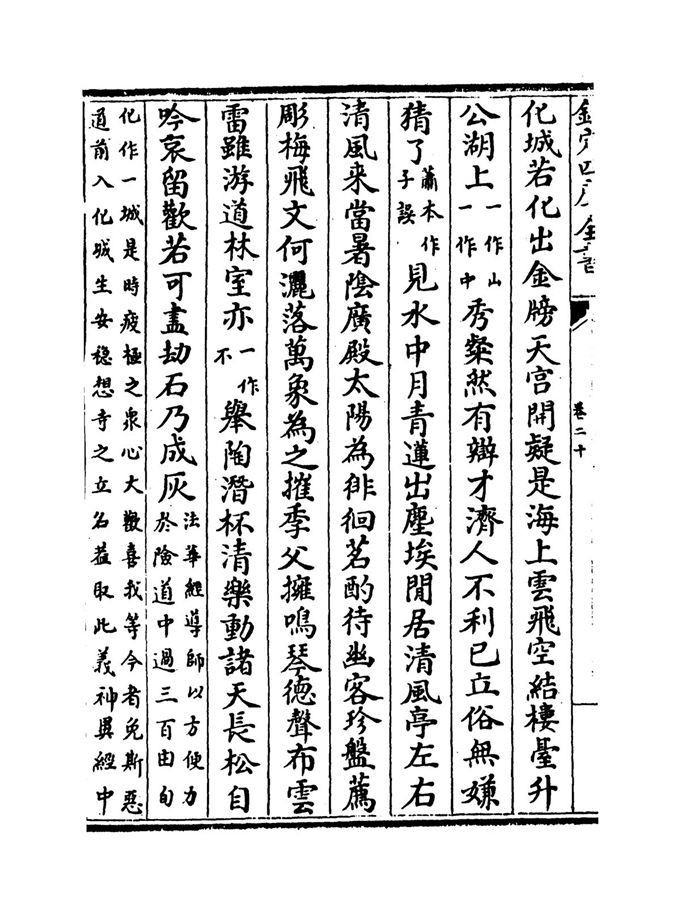 欽定四庫全書
卷二十
化城若化出金牓天宫開疑是海上雲飛空結樓臺升
公湖上一作山一作中秀粲然有辯才濟人不利已立俗無嫌
猜了蕭本作子誤見水中月青蓮出塵埃閒居清風亭左右
清風來當暑陰廣殿太陽為徘徊茗酌待幽客珍盤薦
彫梅飛文何灑落萬象為之摧季父擁鳴琴德聲布雲
雷雖游道林室亦一作不舉陶潛杯清樂動諸天長松自
吟哀留歡若可盡劫石乃成灰法華經導師以方便力於險道中過三百由旬
化作一城是時疲極之衆心大歡喜我等今者免斯惡
道前入化城生安穏想寺之立名葢取此義神異經中